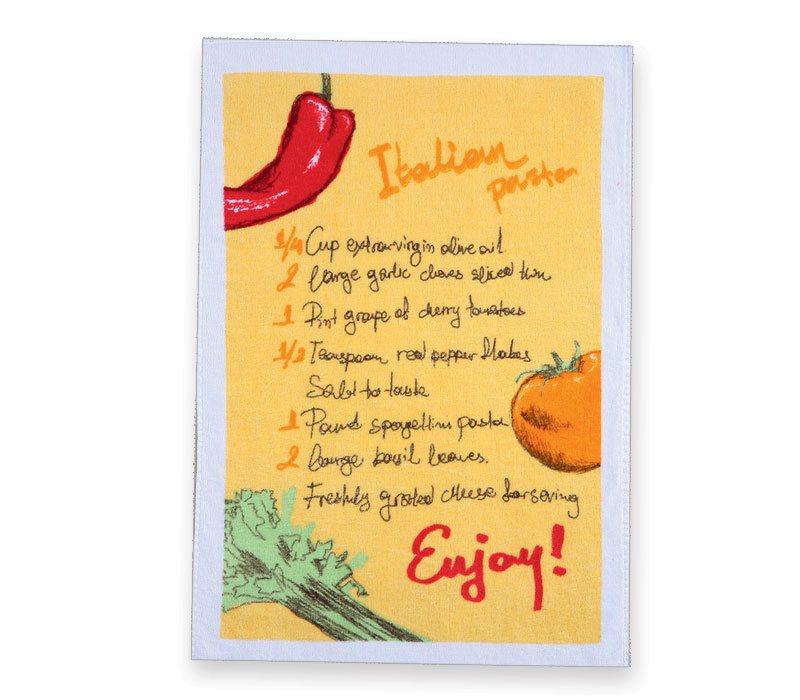 Italian
pasta
1/4 Cup extra-virgin olive oil
2 large garlic cloves sliced thin
1 Pint grape of cherry tomatoes
1/2 Teaspoon red pepper flakes
Salt to taste
1 Pound spagettini pasta
2 large basil leaves.
Freshly grated cheese for seving
Enjoy!